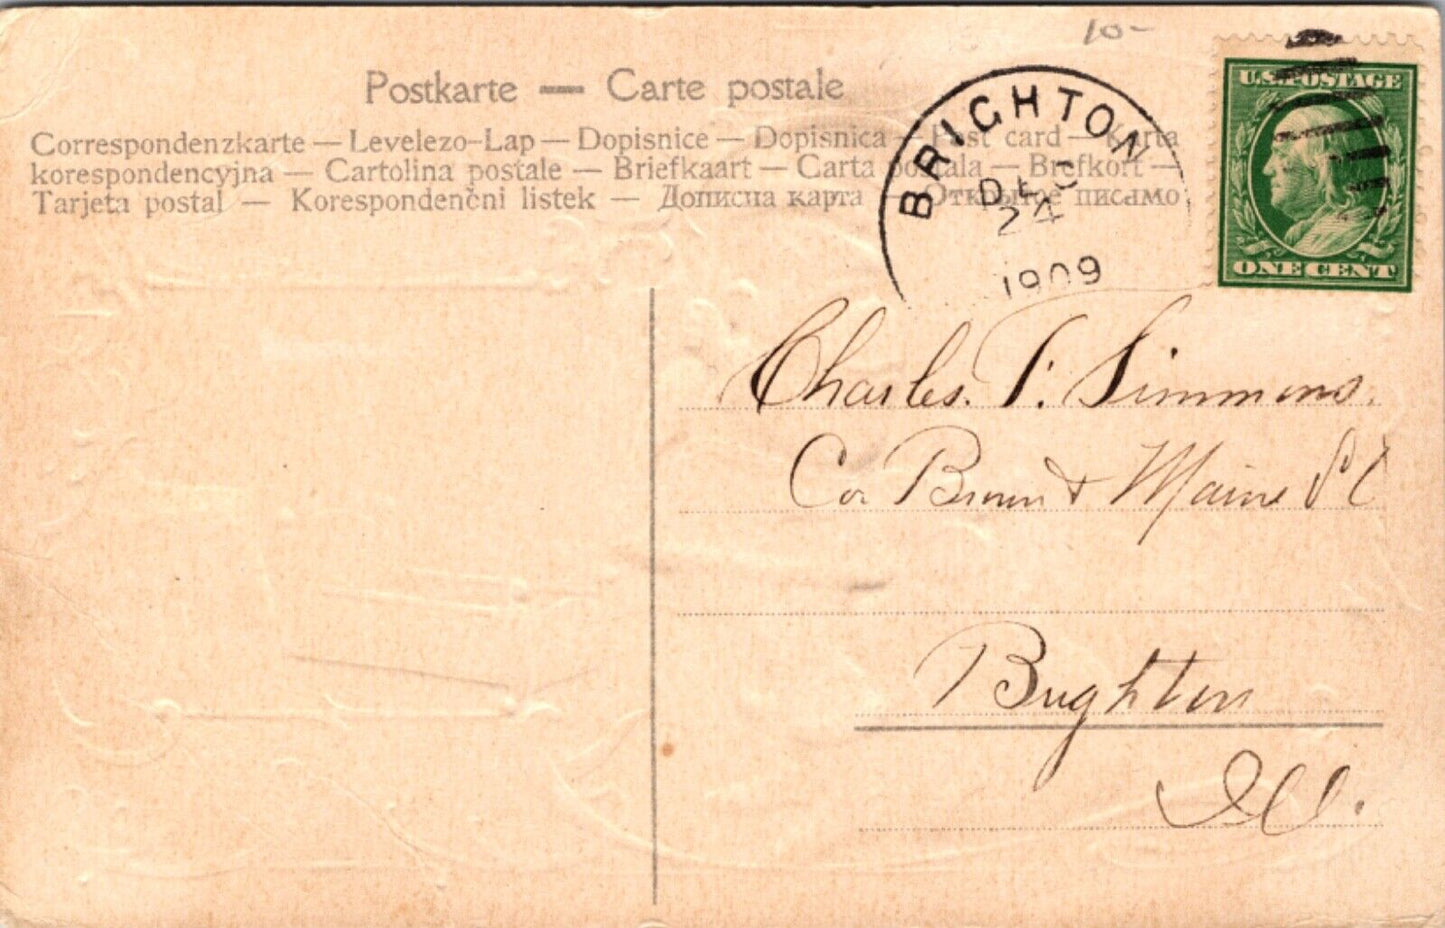 10-
Postkarte — Carte postale
Correspondenzkarte — Levelezo-Lap — Dopisnice — Dopisnica — Post card — Karta
korespondencyjna — Cartolina postale — Briefkaart — Carta postala — Brefkort —
Tarjeta postal — Korespondenčni listek — Дописна карта — Открытое писмо
BRIGHTON
DEC
24
1909
U.S. POSTAGE
ONE CENT
Charles. T. Simmons.
Cor Brown & Maine St
Brighton
Ill.